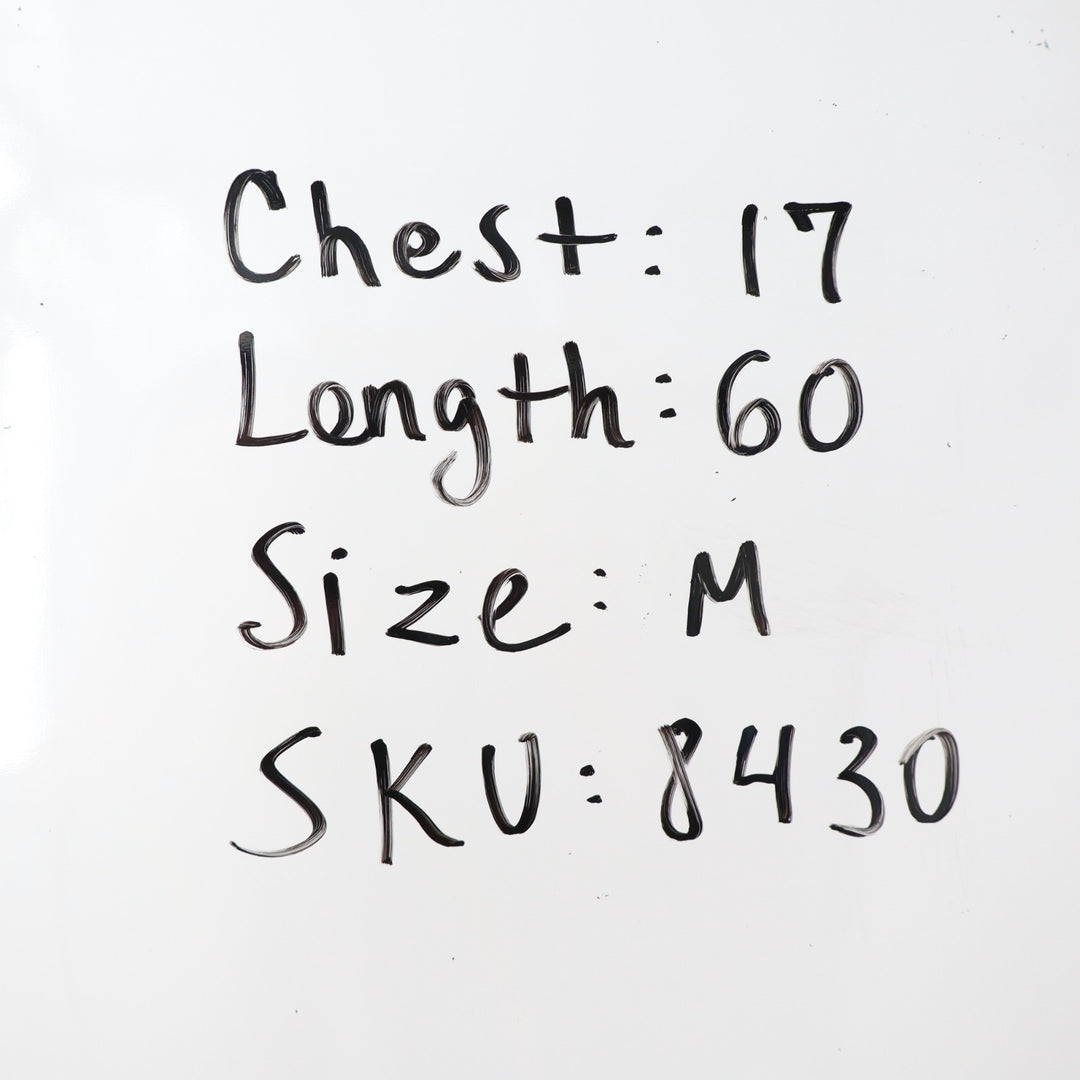 Chest: 17
Length: 60
Size: M
SKU: 8430